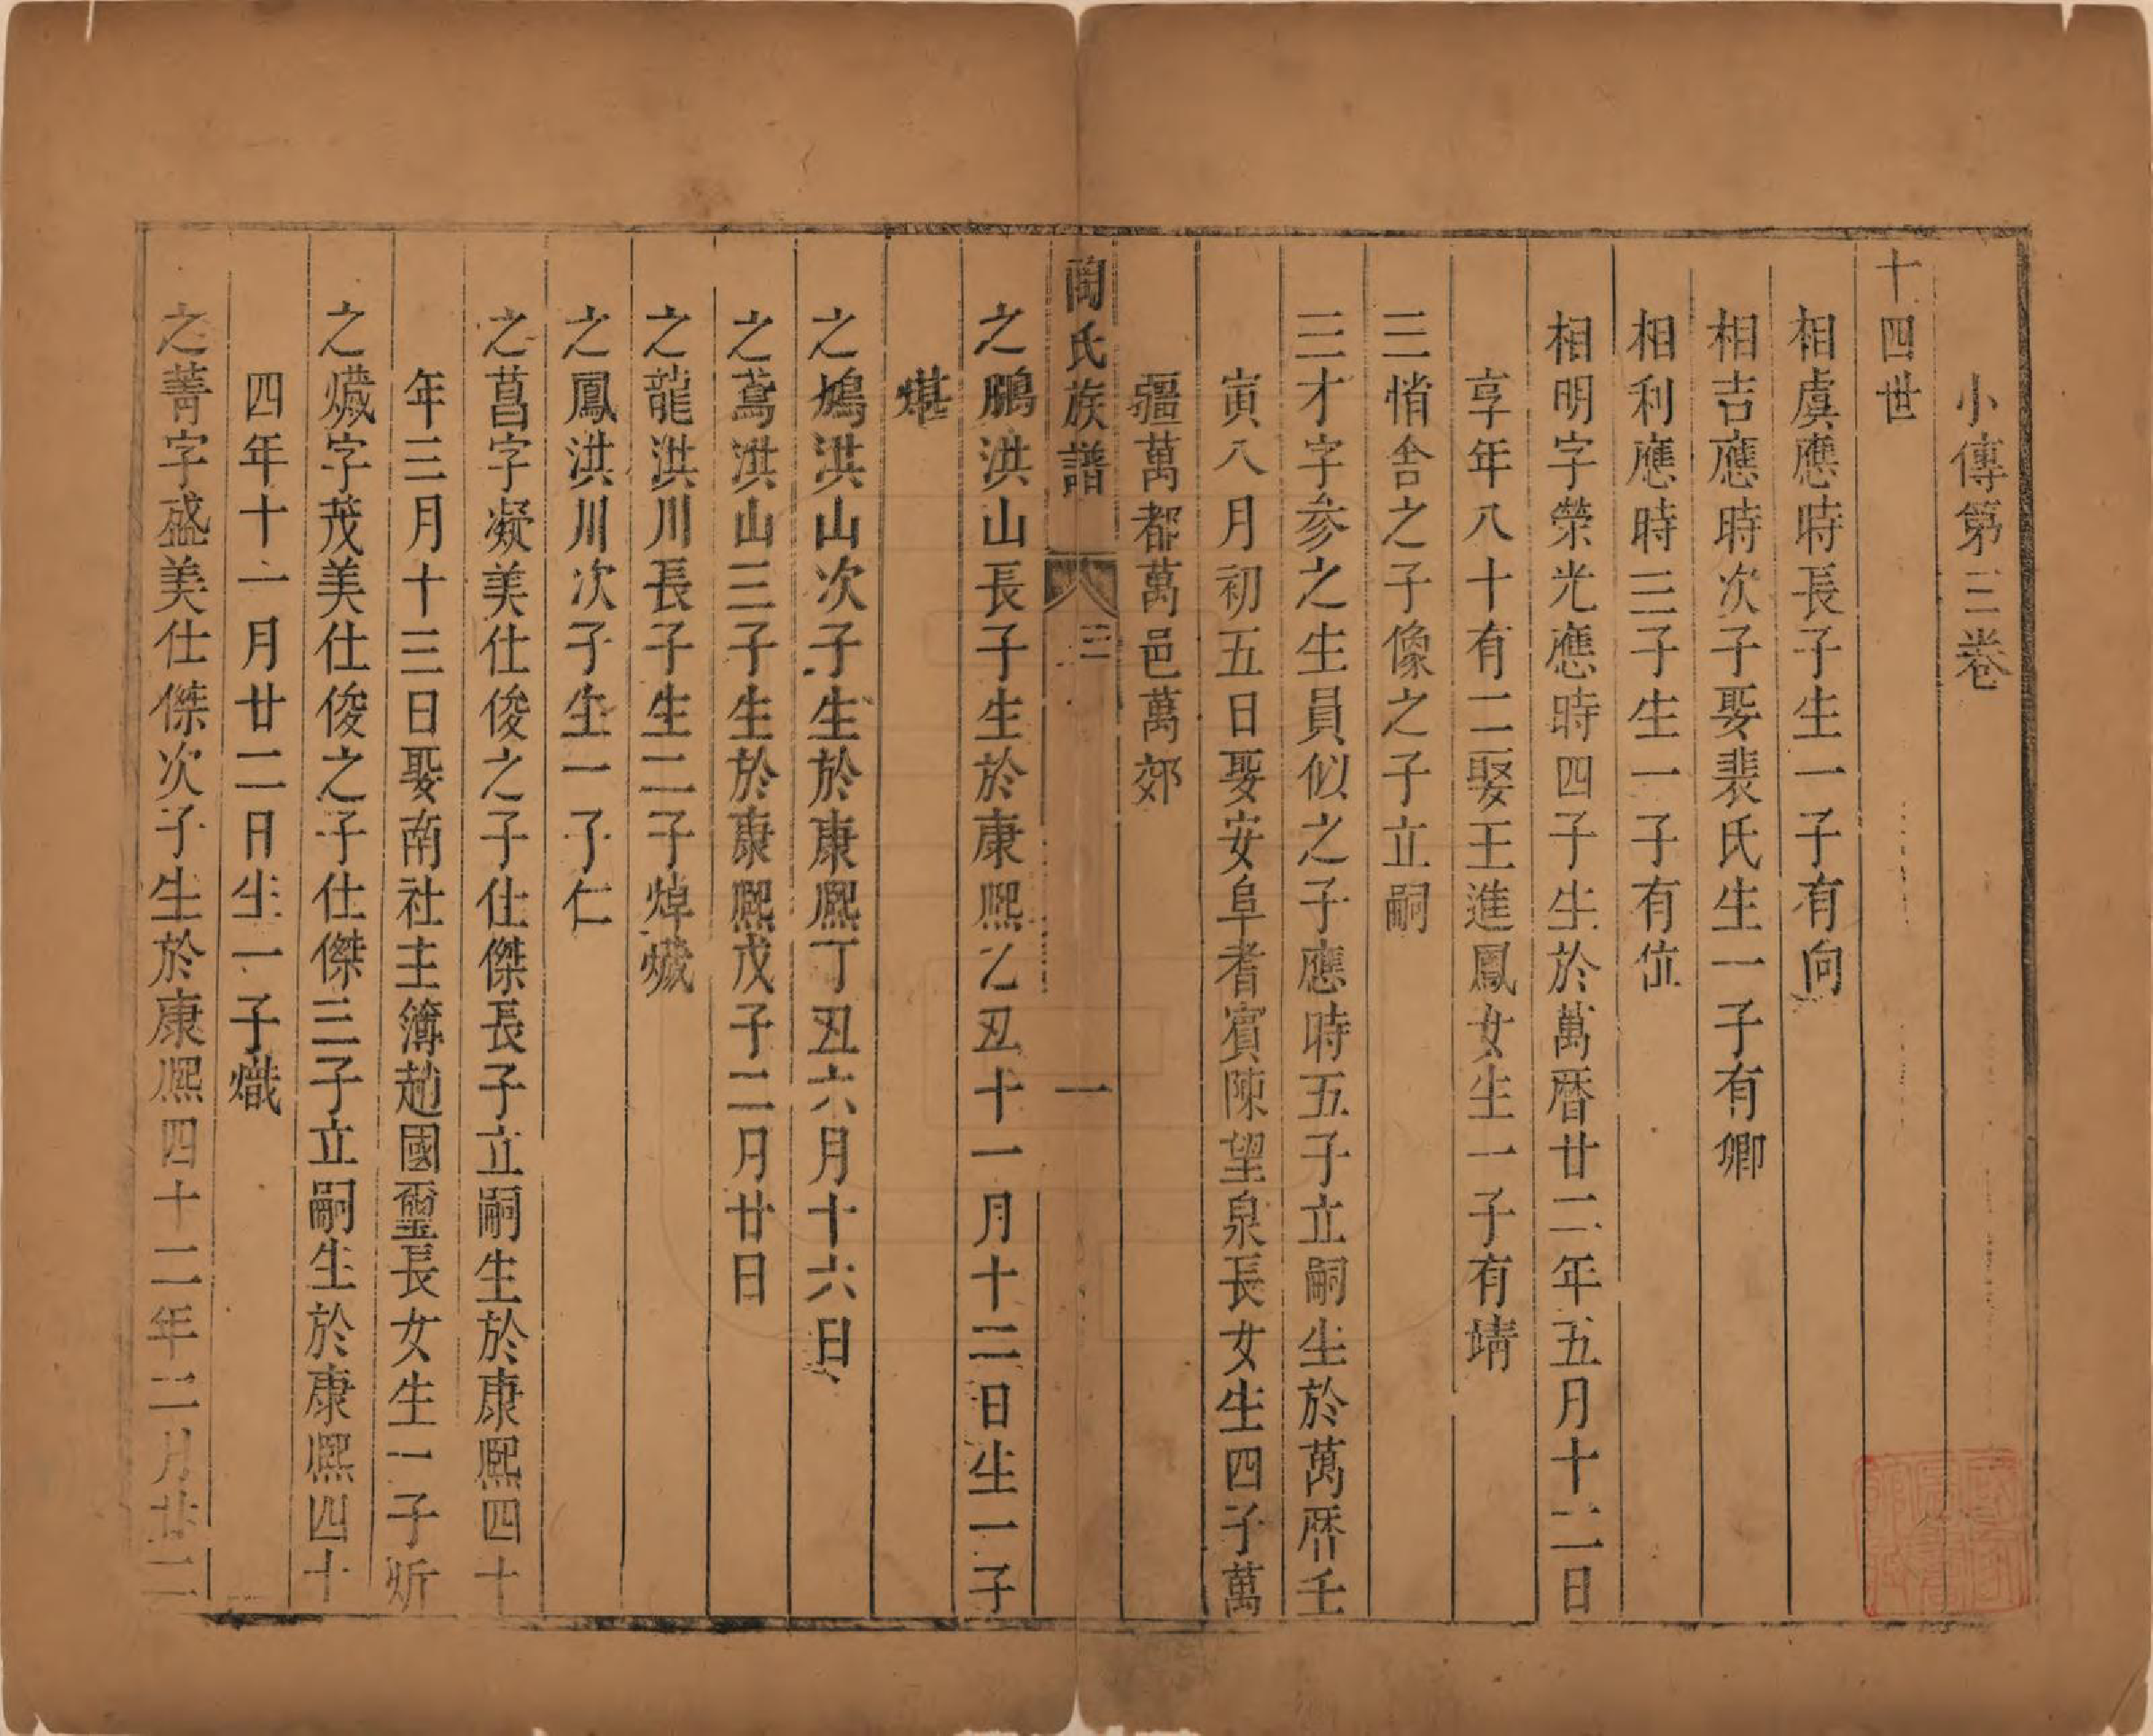 小傳第三卷
十四世
相虞應時長子生一子有向
相吉應時次子娶裴氏生一子有卿
相利應時三子生一子有位
相明字榮光應時四子生於萬曆廿二年五月十二日
享年八十有二娶王進鳳女生一子有靖
三悄舍之子像之子立嗣
三才字参之生員似之子應時五子立嗣生於萬曆壬
寅八月初五日娶安阜耆賓陳望泉長女生四子萬
疆萬都萬邑萬郊
陶氏族譜 三 一
之鵬洪山長子生於康熙乙丑十一月十二日生一子
煁
之鳩洪山次子生於康熙丁丑六月十六日
之鳶洪山三子生於康熙戊子二月廿日
之龍洪川長子生二子焯爔
之鳳洪川次子生一子仁
之菖字凝美仕俊之子仕傑長子立嗣生於康熙四十
年三月十三日娶南社主簿趙國璽長女生一子炘
之字茂美仕俊之子仕傑三子立嗣生於康熙四十
四年十一月廿二日生一子熾
之菁字盛美仕傑次子生於康熙四十二年二月廿二